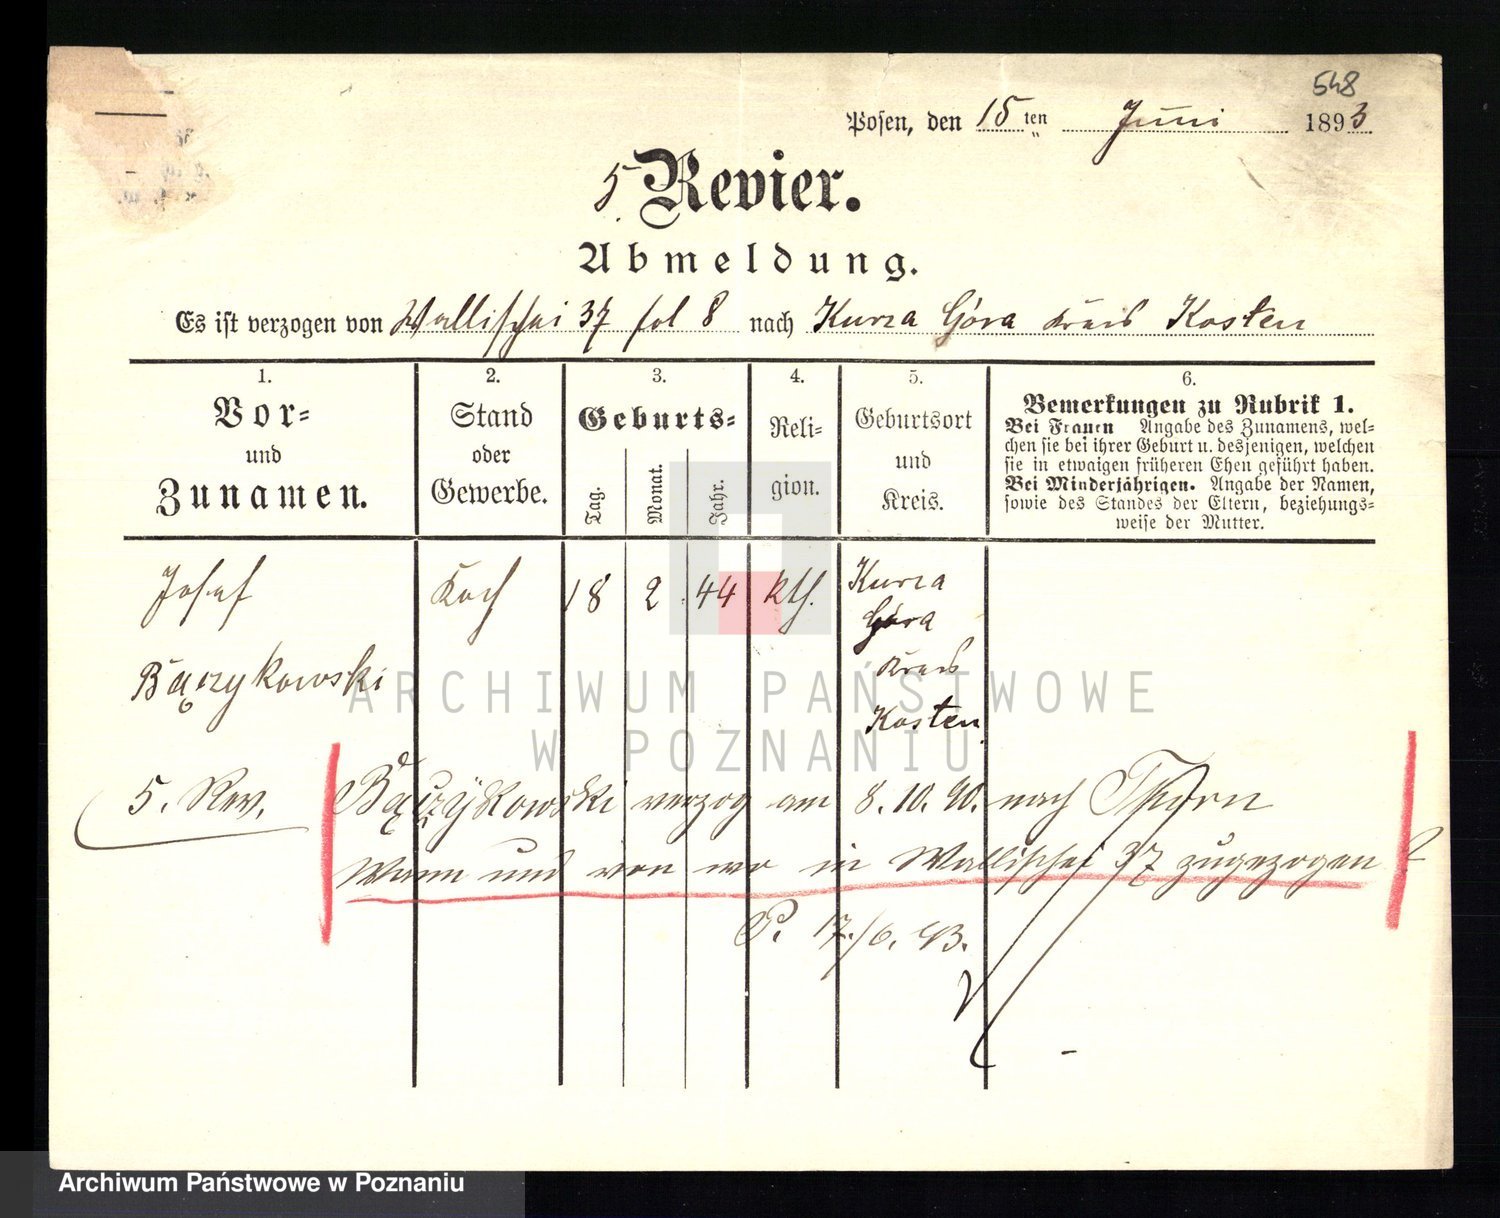 548
Posen, den 15 ten Juni 1893
5 Revier.
Abmeldung.
Es ist verzogen von Wallischei 37 fol 8 nach Kurza Góra Kreis Kosten
1.
Vor-
und
Zunamen.
2.
Stand
oder
Gewerbe.
3.
Geburts-
Tag.
Monat.
Jahr.
4.
Reli-
gion.
5.
Geburtsort
und
Kreis.
6.
Bemerkungen zu Rubrik 1.
Bei Frauen Angabe des Zunamens, wel-
chen sie bei ihrer Geburt u. desjenigen, welchen
sie in etwaigen früheren Ehen geführt haben.
Bei Minderjährigen. Angabe der Namen,
sowie des Standes der Eltern, beziehungs-
weise der Mutter.
Josef
Bączykowski
Koch
18 2 44 kth.
Kurza
Góra
Kreis
Kosten
5. Rev.
Bączykowski verzog am 8.10.90. nach Thorn
Wann und von wo in Wallischei 37 zugezogen?
P. 17./6. 93.
ARCHIWUM PAŃSTWOWE
W POZNANIU
Archiwum Państwowe w Poznaniu